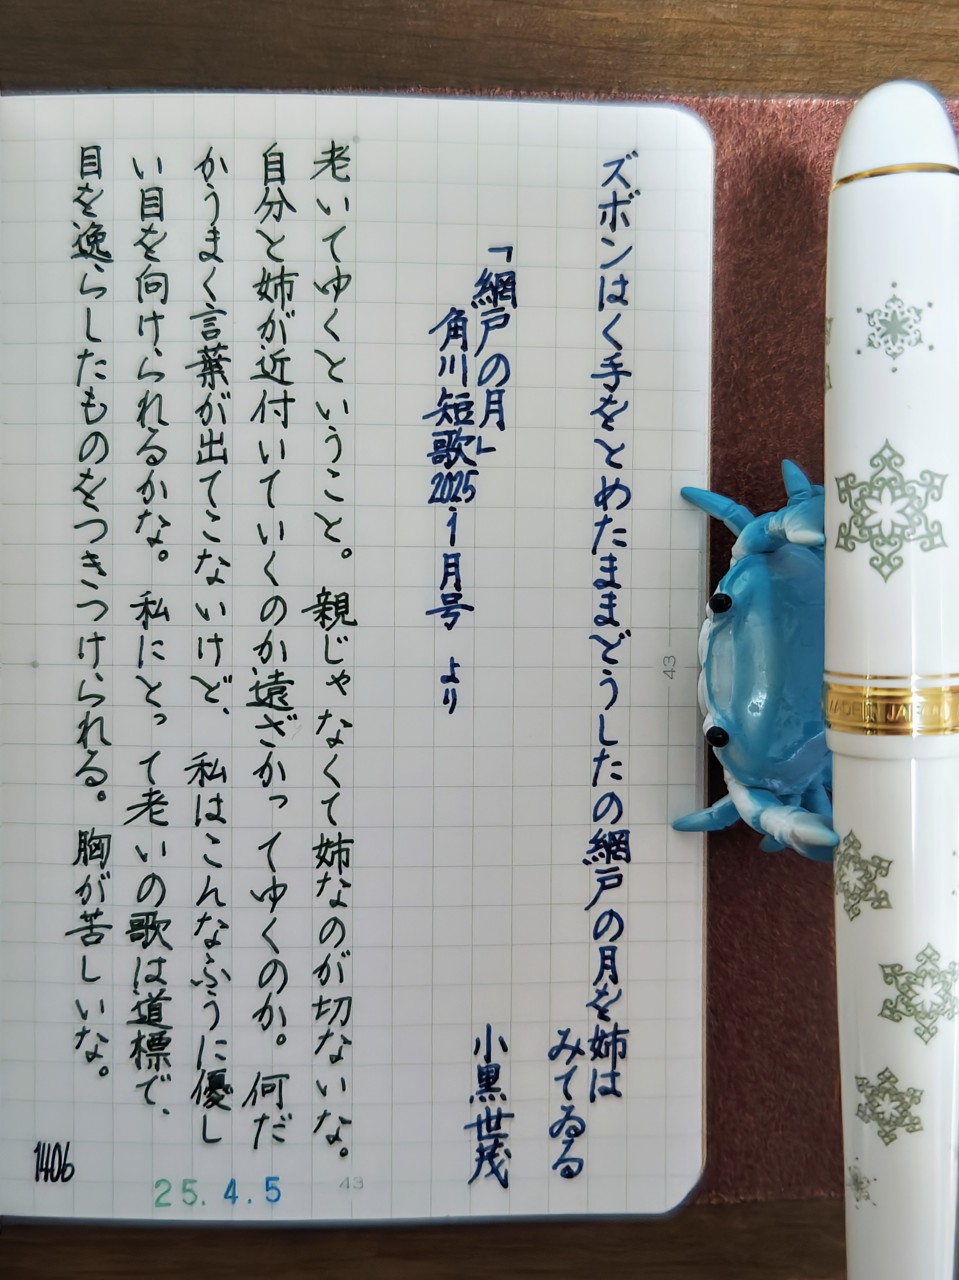 ズボンはく手をとめたままどうしたの網戸の月を姉は
みてゐる
「網戸の月」
小黒世茂
角川短歌2025・1月号 より
老いてゆくということ。親じゃなくて姉なのが切ないな。
自分と姉が近付いていくのか遠ざかってゆくのか。何だ
かうまく言葉が出てこないけど、私はこんなふうに優し
い目を向けられるかな。私にとって老いの歌は道標で、
目を逸らしたものをつきつけられる。胸が苦しいな。
1406
25.4.5
43
43
MADE IN JAPAN